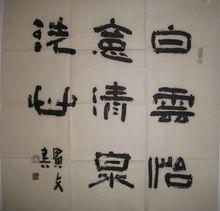 白雲怡
意清泉
洗心